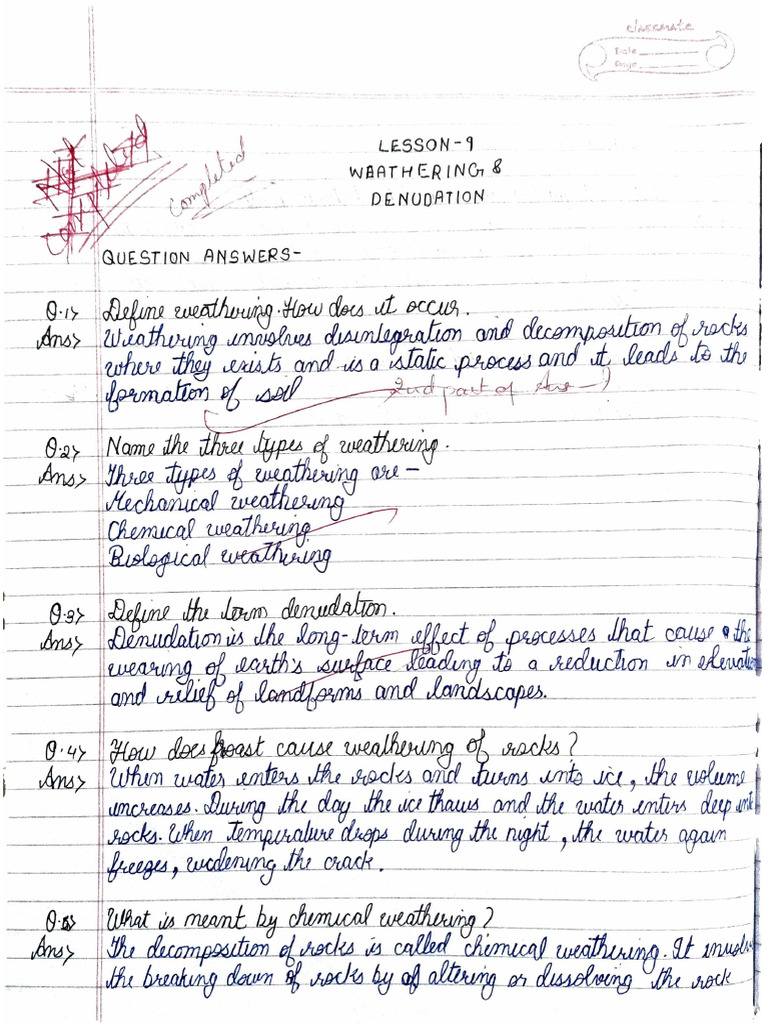 classmate
Date
Page
LESSON-9
WEATHERING &
DENUDATION
completed
QUESTION ANSWERS-
Q.1> Define weathering. How does it occur.
Ans> Weathering involves disintegration and decomposition of rocks
where they exists and is a static process and it leads to the
formation of soil
2nd part of Ans-1
Q.2> Name the three types of weathering.
Ans> Three types of weathering are-
Mechanical weathering
Chemical weathering
Biological weathering
Q.3> Define the term denudation.
Ans> Denudation is the long-term effect of processes that cause the
wearing of earth's surface leading to a reduction in elevation
and relief of landforms and landscapes.
Q.4> How does frost cause weathering of rocks?
Ans> When water enters the rocks and turns into ice, the volume
increases. During the day the ice thaws and the water enters deep into
rocks. When temperature drops during the night, the water again
freezes, widening the crack.
Q.5> What is meant by chemical weathering?
Ans> The decomposition of rocks is called chemical weathering. It involves
the breaking down of rocks by of altering or dissolving the rock